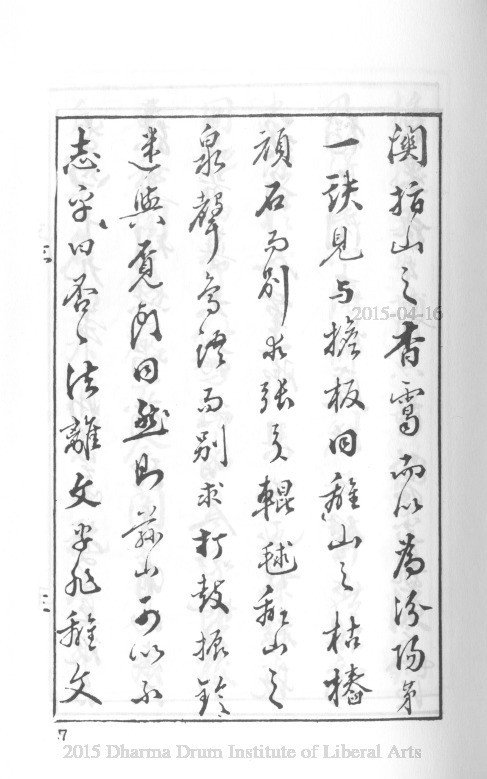 澳指山之杳靄而以為汾陽第
一訣見与擔板同離山之枯樁
頑石而別求張弓輥毬離山之
泉聲鳥語而別求打鼓振鈴
迷與覺同然則茲山可以不
志乎曰否〻法離文字非離文
2015-04-16
7
2015 Dharma Drum Institute of Liberal Arts